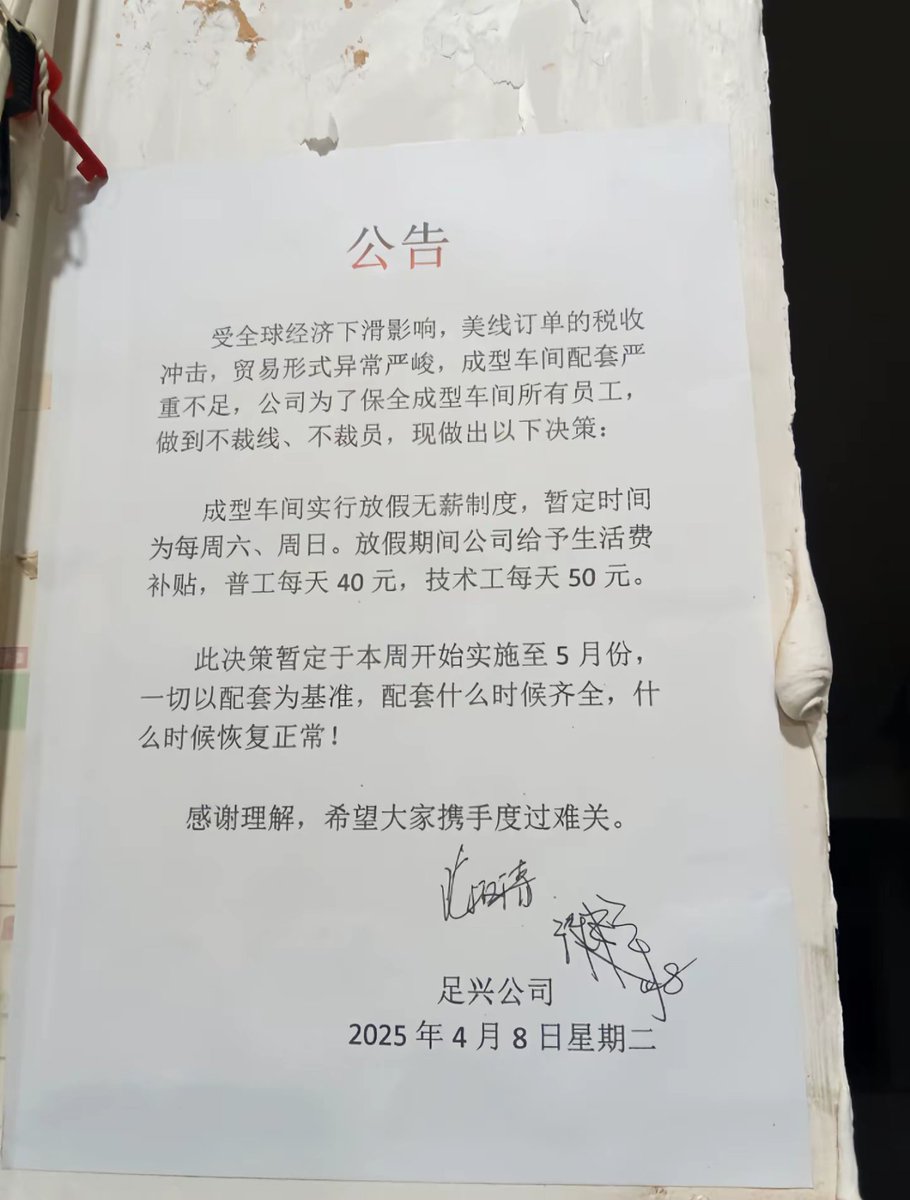 公告
受全球经济下滑影响，美线订单的税收
冲击，贸易形式异常严峻，成型车间配套严
重不足，公司为了保全成型车间所有员工，
做到不裁线、不裁员，现做出以下决策：
成型车间实行放假无薪制度，暂定时间
为每周六、周日。放假期间公司给予生活费
补贴，普工每天 40 元，技术工每天 50 元。
此决策暂定于本周开始实施至 5 月份，
一切以配套为基准，配套什么时候齐全，什
么时候恢复正常！
感谢理解，希望大家携手度过难关。
足兴公司
2025 年 4 月 8 日星期二